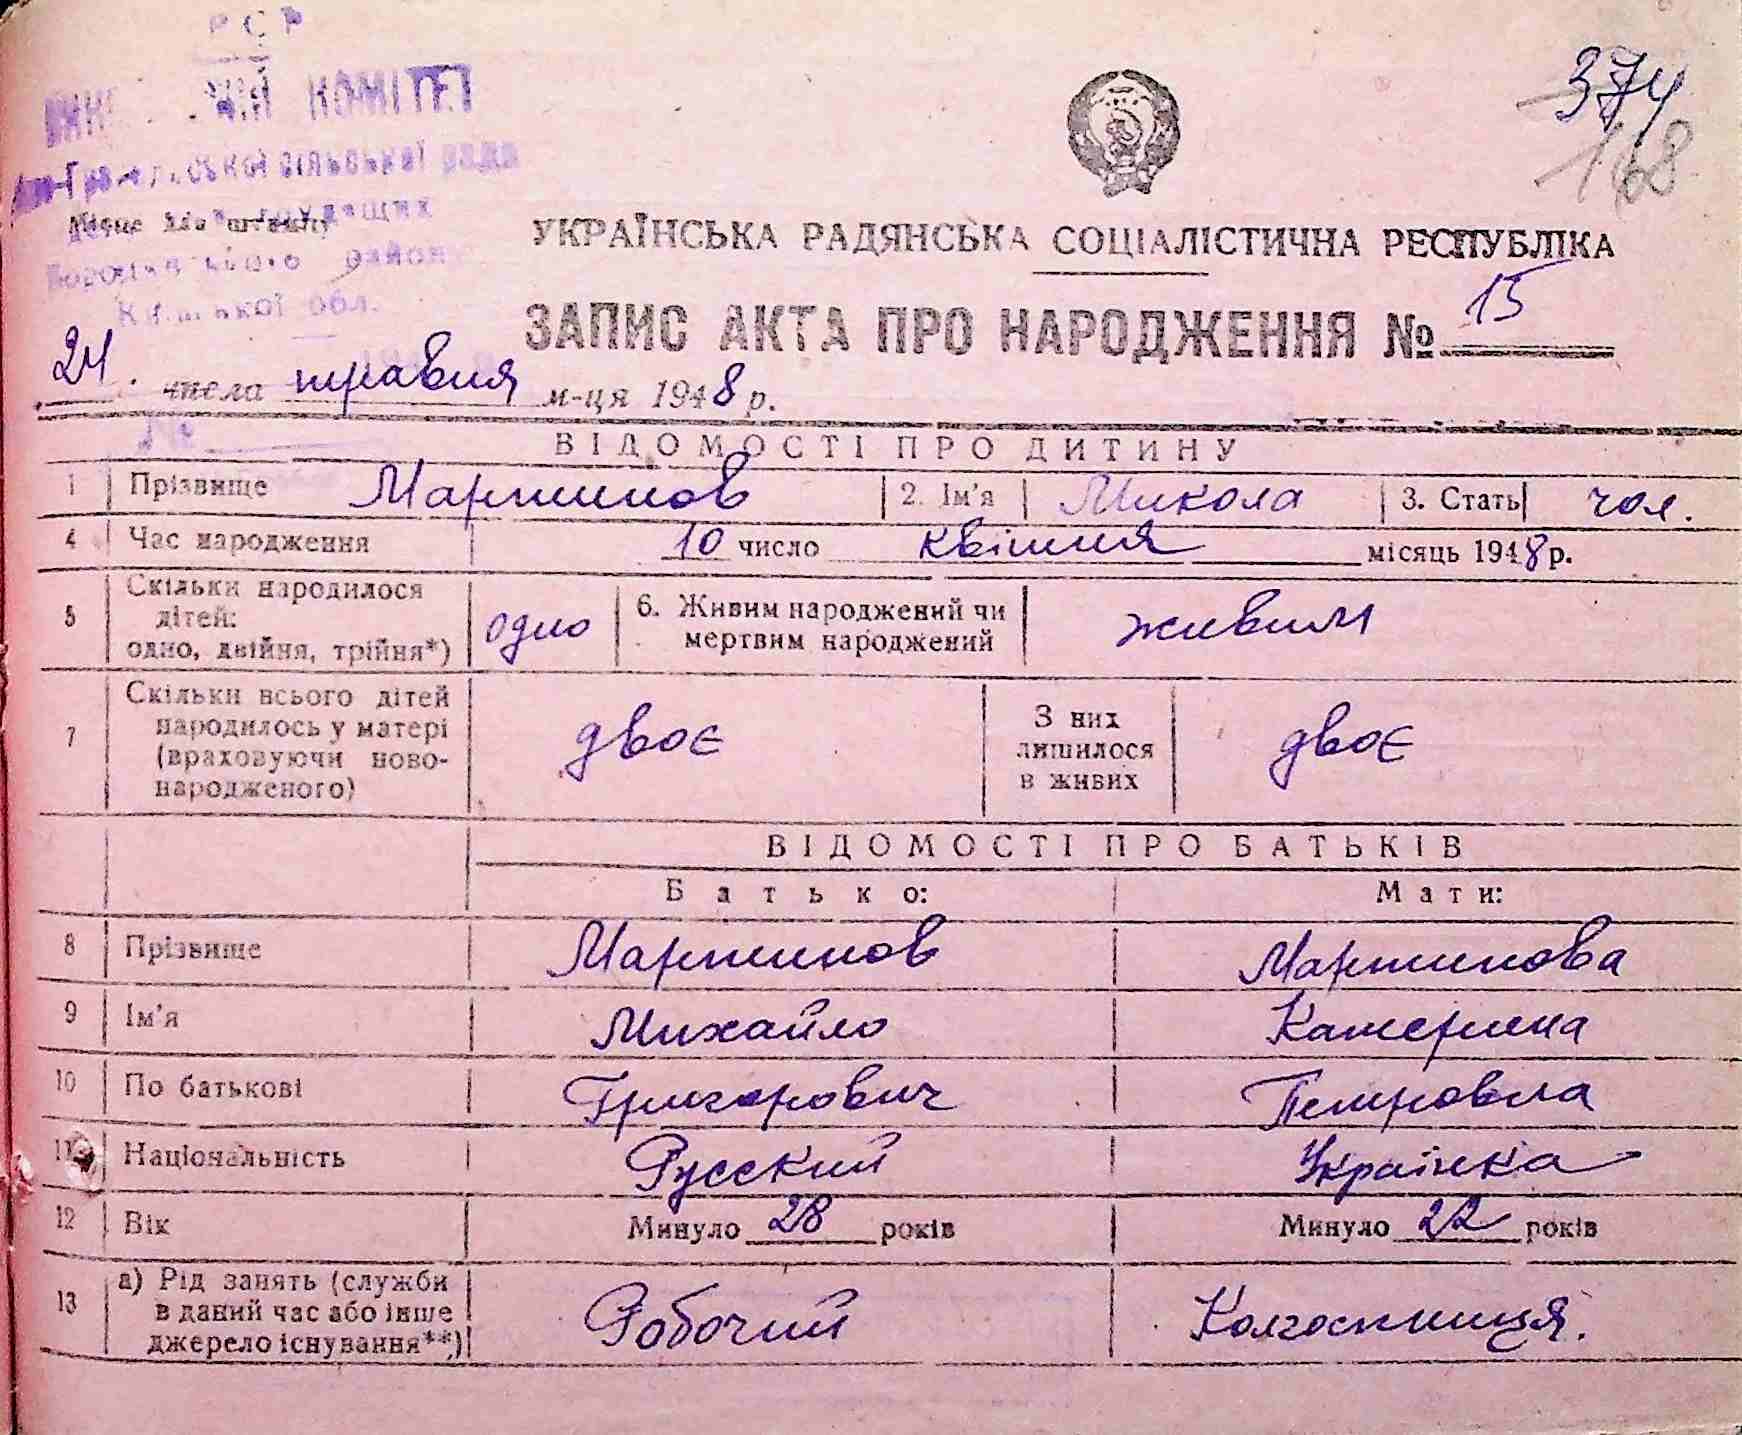 РСР
КОМІТЕТ
сільської рада
Місце для штампу
трудящих
району
обл.
374
168
УКРАЇНСЬКА РАДЯНСЬКА СОЦІАЛІСТИЧНА РЕСПУБЛІКА
ЗАПИС АКТА ПРО НАРОДЖЕННЯ № 15
24. числа травня м-ця 1948 р.
№
ВІДОМОСТІ ПРО ДИТИНУ
1 Прізвище Мартинов 2. Ім'я Микола 3. Стать чол.
4 Час народження 10 число квітня місяць 1948 р.
5 Скільки народилося дітей: одно, двійня, трійня*) одно 6. Живим народжений чи мертвим народжений живим
7 Скільки всього дітей народилось у матері (враховуючи ново-народженого) двоє З них лишилося в живих двоє
ВІДОМОСТІ ПРО БАТЬКІВ
Батько: Мати:
8 Прізвище Мартинов Мартинова
9 Ім'я Михайло Катерина
10 По батькові Григорович Петровна
11 Національність Русский Українка
12 Вік Минуло 28 років Минуло 22 років
13 а) Рід занять (служби в даний час або інше джерело існування**) Робочий Колгоспниця.